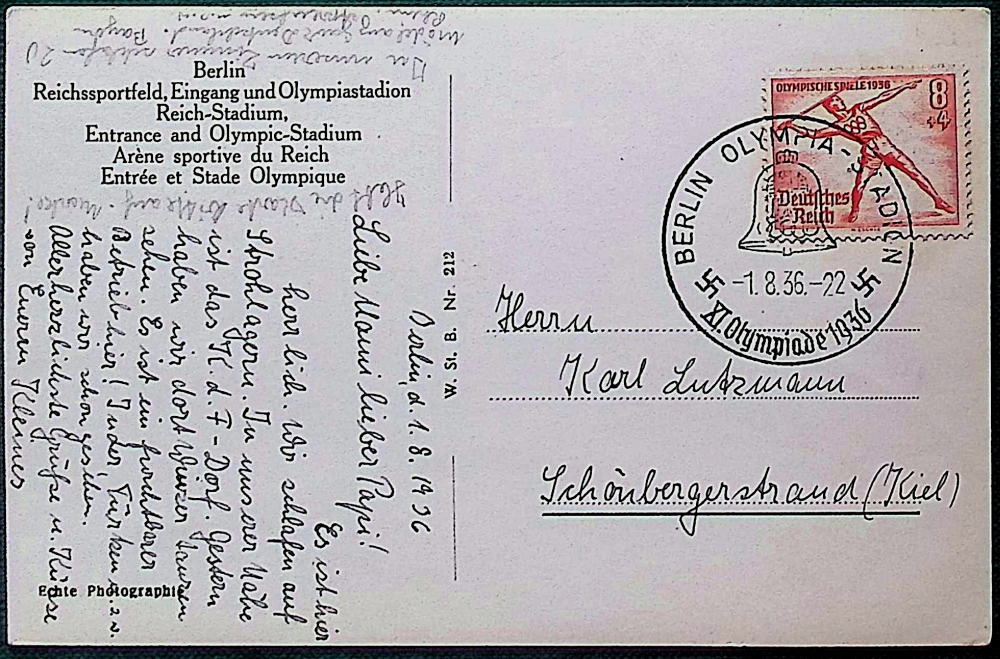 Berlin
Reichssportfeld, Eingang und Olympiastadion
Reich-Stadium,
Entrance and Olympic-Stadium
Arène sportive du Reich
Entrée et Stade Olympique
OLYMPISCHE SPIELE 1936
8
+4
Deutsches
Reich
BERLIN OLYMPIA-STADION
-1.8.36.-22
XI. Olympiade 1936
W. St. B. Nr. 212
Herrn
Karl Lutzmann
Schönbergerstrand (Kiel)
Berlin, d. 1. 8. 1936
Liebe Mami lieber Papi!
Es ist hier
herrlich. Wir schlafen auf
Strohlagern. In unserer Nähe
ist das K. d. F-Dorf. Gestern
haben wir dort
sehen. Es ist ein furchtbarer
Betrieb hier! Inder, Türken u.s.w.
haben wir schon gesehen.
Allerherzlichste Grüße u. Küsse
von Eurem Kleines
Hebt die Marke bitte auf
In unserem Zimmer schlafen 20
Mädel aus ganz Deutschland. Bayern
Echte Photographie